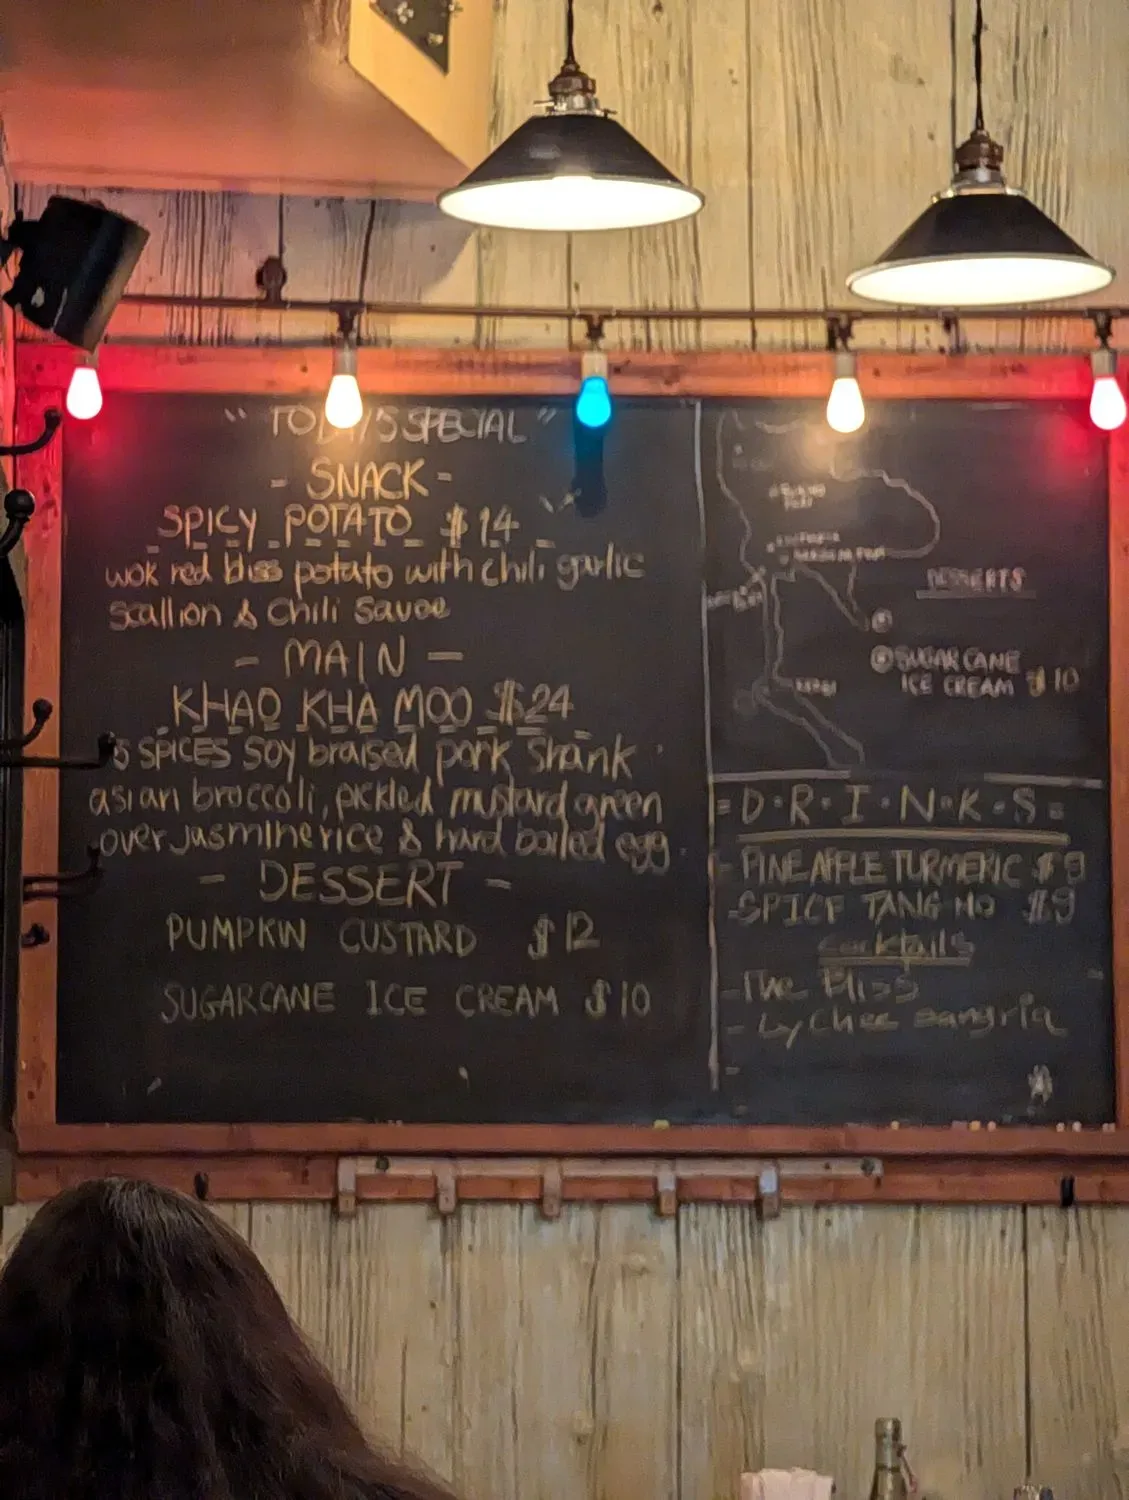 " TODAY'S SPECIAL "
- SNACK -
SPICY POTATO $14
wok red bliss potato with chili garlic
scallion & Chili Sauce
- MAIN -
KHAO KHA MOO $24
5 SPICES SOY braised pork shank
asian broccoli, pickled mustard green
over Jasmine rice & hard boiled egg.
- DESSERT -
PUMPKIN CUSTARD $12
SUGARCANE ICE CREAM $10
DESSERTS
SUGAR CANE
ICE CREAM $10
= D • R • I • N • K • S =
- PINEAPPLE TURMERIC $9
- SPICE TANG HO $9
Cocktails
- The Bliss
- Lychee sangria